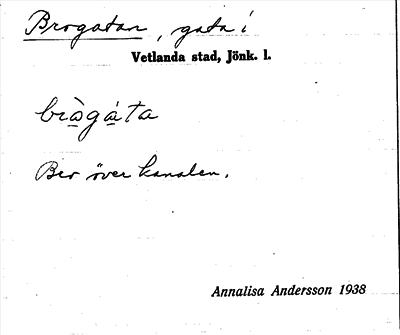 Brogatan, gata i
Vetlanda stad, Jönk. l.
bràgáta
Bro över kanalen.
Annalisa Andersson 1938